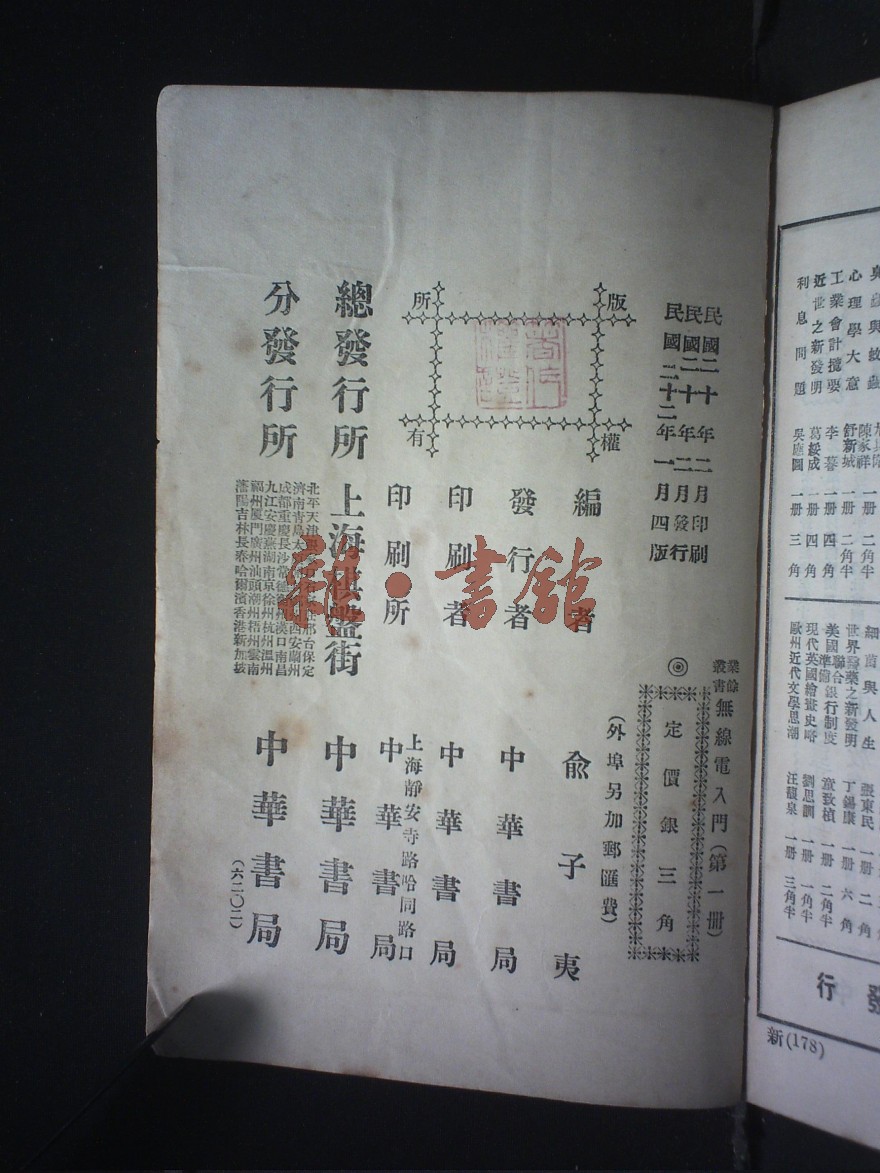 民國二十年二月印刷
民國二十年二月發行
民國二十二年一月四版
業餘叢書
無線電入門(第一册)
◎定價銀三角
(外埠另加郵匯費)
版權所有
編者 俞子夷
發行者 中華書局
印刷者 中華書局
印刷所 上海靜安寺路哈同路口
中華書局
總發行所 上海棋盤街 中華書局
分發行所 中華書局
北平天津 邢台保定
濟南青島太 西安蘭州
成都重慶長沙常德 漢口南昌
九江安慶蕪湖南京徐州杭州溫州
福州厦門廣州汕頭潮州梧州雲南
瀋陽吉林長春哈爾濱香港新加坡
(六二〇二)
雜·書館
心理學大意 舒新城 一册 二角半
工業會計撮要 李暮 一册 四角
近世之新發明 葛綏成 一册 四角
利息問題 吳應圖 一册 三角
細菌與人生 張東民 一册 二角
世界醫藥之新發明 丁錫康 一册 六角
美國聯合準備銀行制度 童致楨 一册 二角半
現代英國繪畫史略 劉思訓 一册 一角半
歐州近代文學思潮 汪馥泉 一册 三角半
發行
新(178)